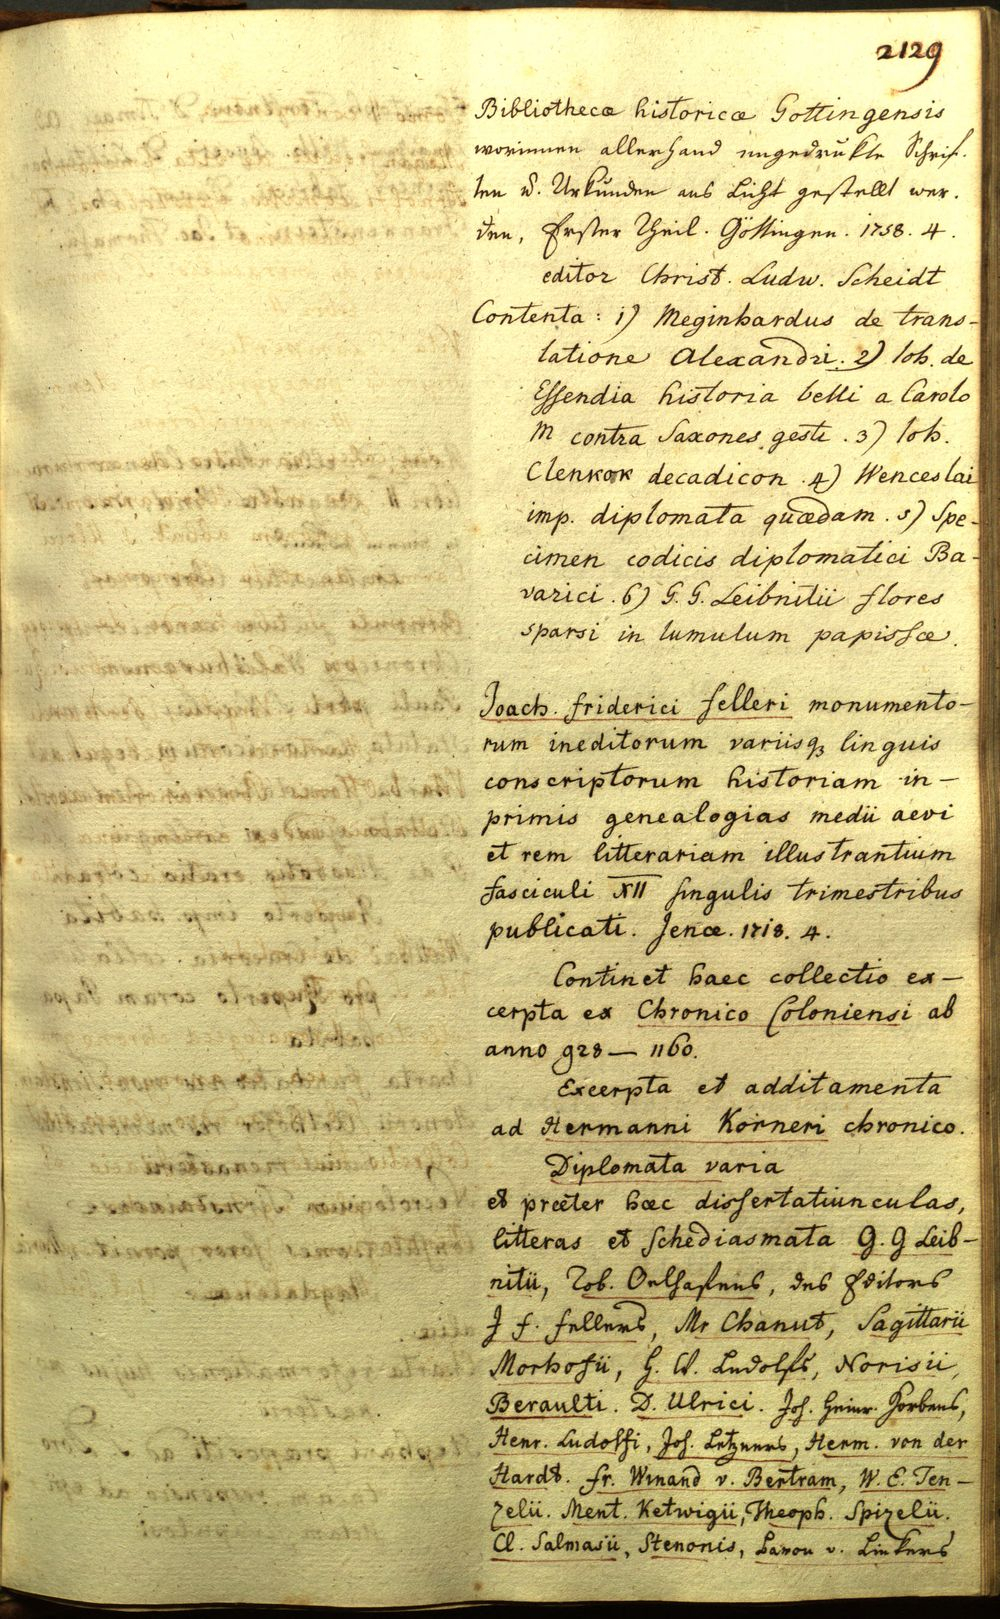 2129
Bibliothecæ historicæ Gottingensis
worinnen allerhand ungedrukte Schrif-
ten u. Urkunden ans Licht gestellt wer-
den, Erster Theil. Göttingen. 1758. 4.
editor Christ. Ludw. Scheidt
Contenta: 1) Meginhardus de trans-
latione Alexandri. 2) Ioh. de
Essendia historia belli a Carolo
M contra Saxones gesti. 3) Ioh.
Clenkok decadicon. 4) Wenceslai
imp. diplomata quædam. 5) Spe-
cimen codicis diplomatici Ba-
varici. 6) G. G. Leibnitii flores
sparsi in tumulum papissæ.
Joach. friderici felleri monumento-
rum ineditorum variisq3 linguis
conscriptorum historiam in-
primis genealogias medii aevi
et rem litterariam illustrantium
fasciculi XII singulis trimestribus
publicati. Jenæ. 1718. 4.
Continet haec collectio ex-
cerpta ex Chronico Coloniensi ab
anno 928 — 1160.
Excerpta et additamenta
ad Hermanni Korneri chronico.
Diplomata varia
et præter hæc dissertatiunculas,
litteras et schediasmata G. G Leib-
nitii, Tob. Oelhafens, des Editors
J f. fellers, Mr Chanut, Sagittarii
Morhofii, H. W. Ludolfs, Norisii,
Beraulti. D. Ulrici. Joh. Heinr. Horbens,
Henr. Ludolfi, Joh. Letzners, Herm. von der
Hardt. fr. Winand v. Bertram, W. E. Ten-
zelii. Ment. Ketwigii, Theoph. Spizelii.
Cl. Salmasii, Stenonis, Baron v. Linkers